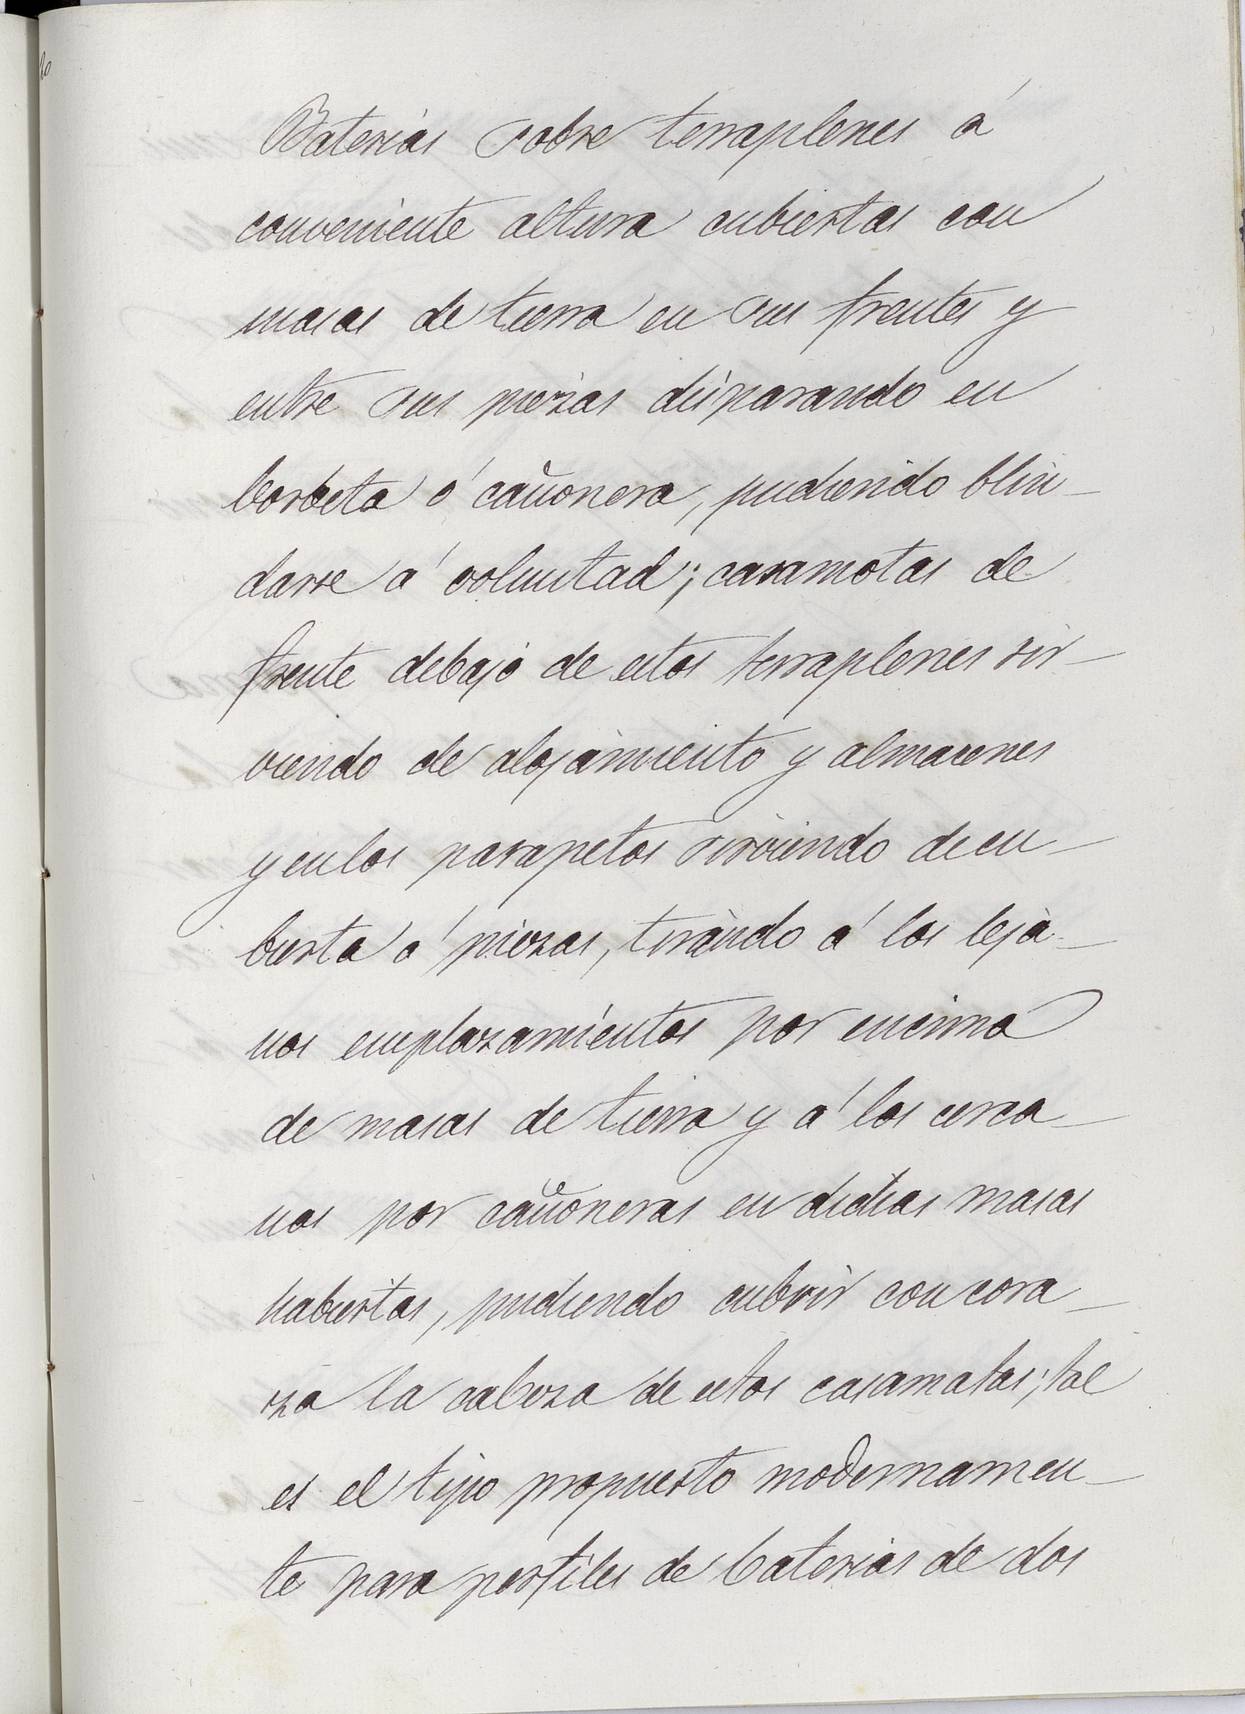 Baterias sobre terraplenes á
conveniente altura cubiertas con
masas de tierra en sus frentes y
entre sus piezas disparando en
barbeta ó cañonera, pudiendo blin-
darse á voluntad; casamatas de
frente debajo de estos terraplenes sir-
viendo de alojamiento y almacenes
y en los parapetos sirviendo de cu-
bierta á piezas, tirando á los leja-
nos emplazamientos por encima
de masas de tierra y á los cerca-
nos por cañoneras en dichas masas
habiertas, pudiendo cubrir con cora-
za la cabeza de estas casamatas; tal
es el tipo propuesto modernamen-
te para perfiles de baterias de dos